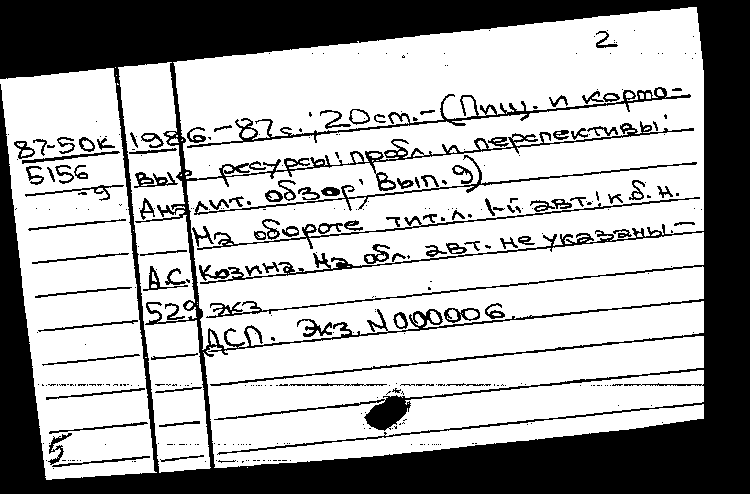 2
87-50к 1986.-87с.; 20см.-(Пищ. и кормо-
5156 вые ресурсы: пробл. и перспективы:
-9 Аналит. обзор; Вып. 9)
На обороте тит.л. 1-й авт.: к.б.н.
А.С. Козина. На обл. авт. не указаны.-
529 экз.
ДСП. Экз. N000006.
5